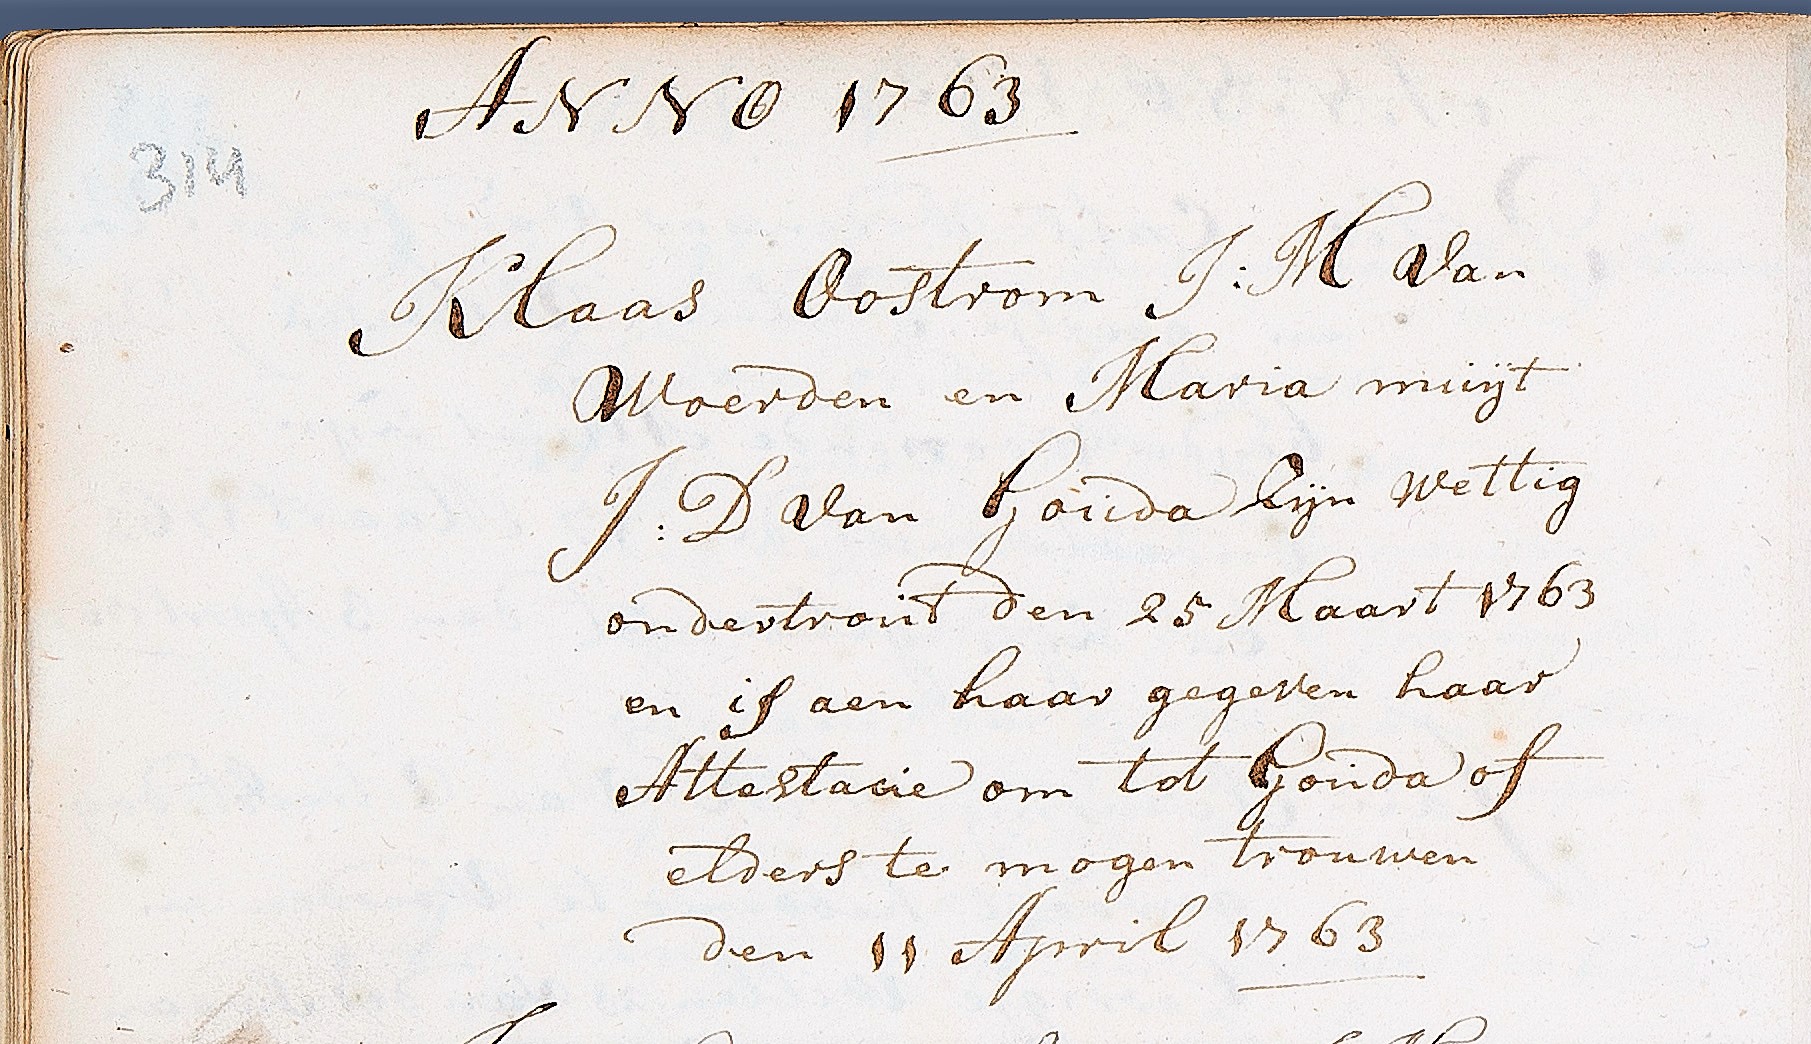 ANNO 1763
314
Klaas Oostrom J:M Van
Woerden en Maria muijt
J:D Van Gouda Zijn wettig
ondertrout den 25 Maart 1763
en is aen haar gegeven haar
Attestacie om tot Gouda of
elders te mogen trouwen
den 11 April 1763